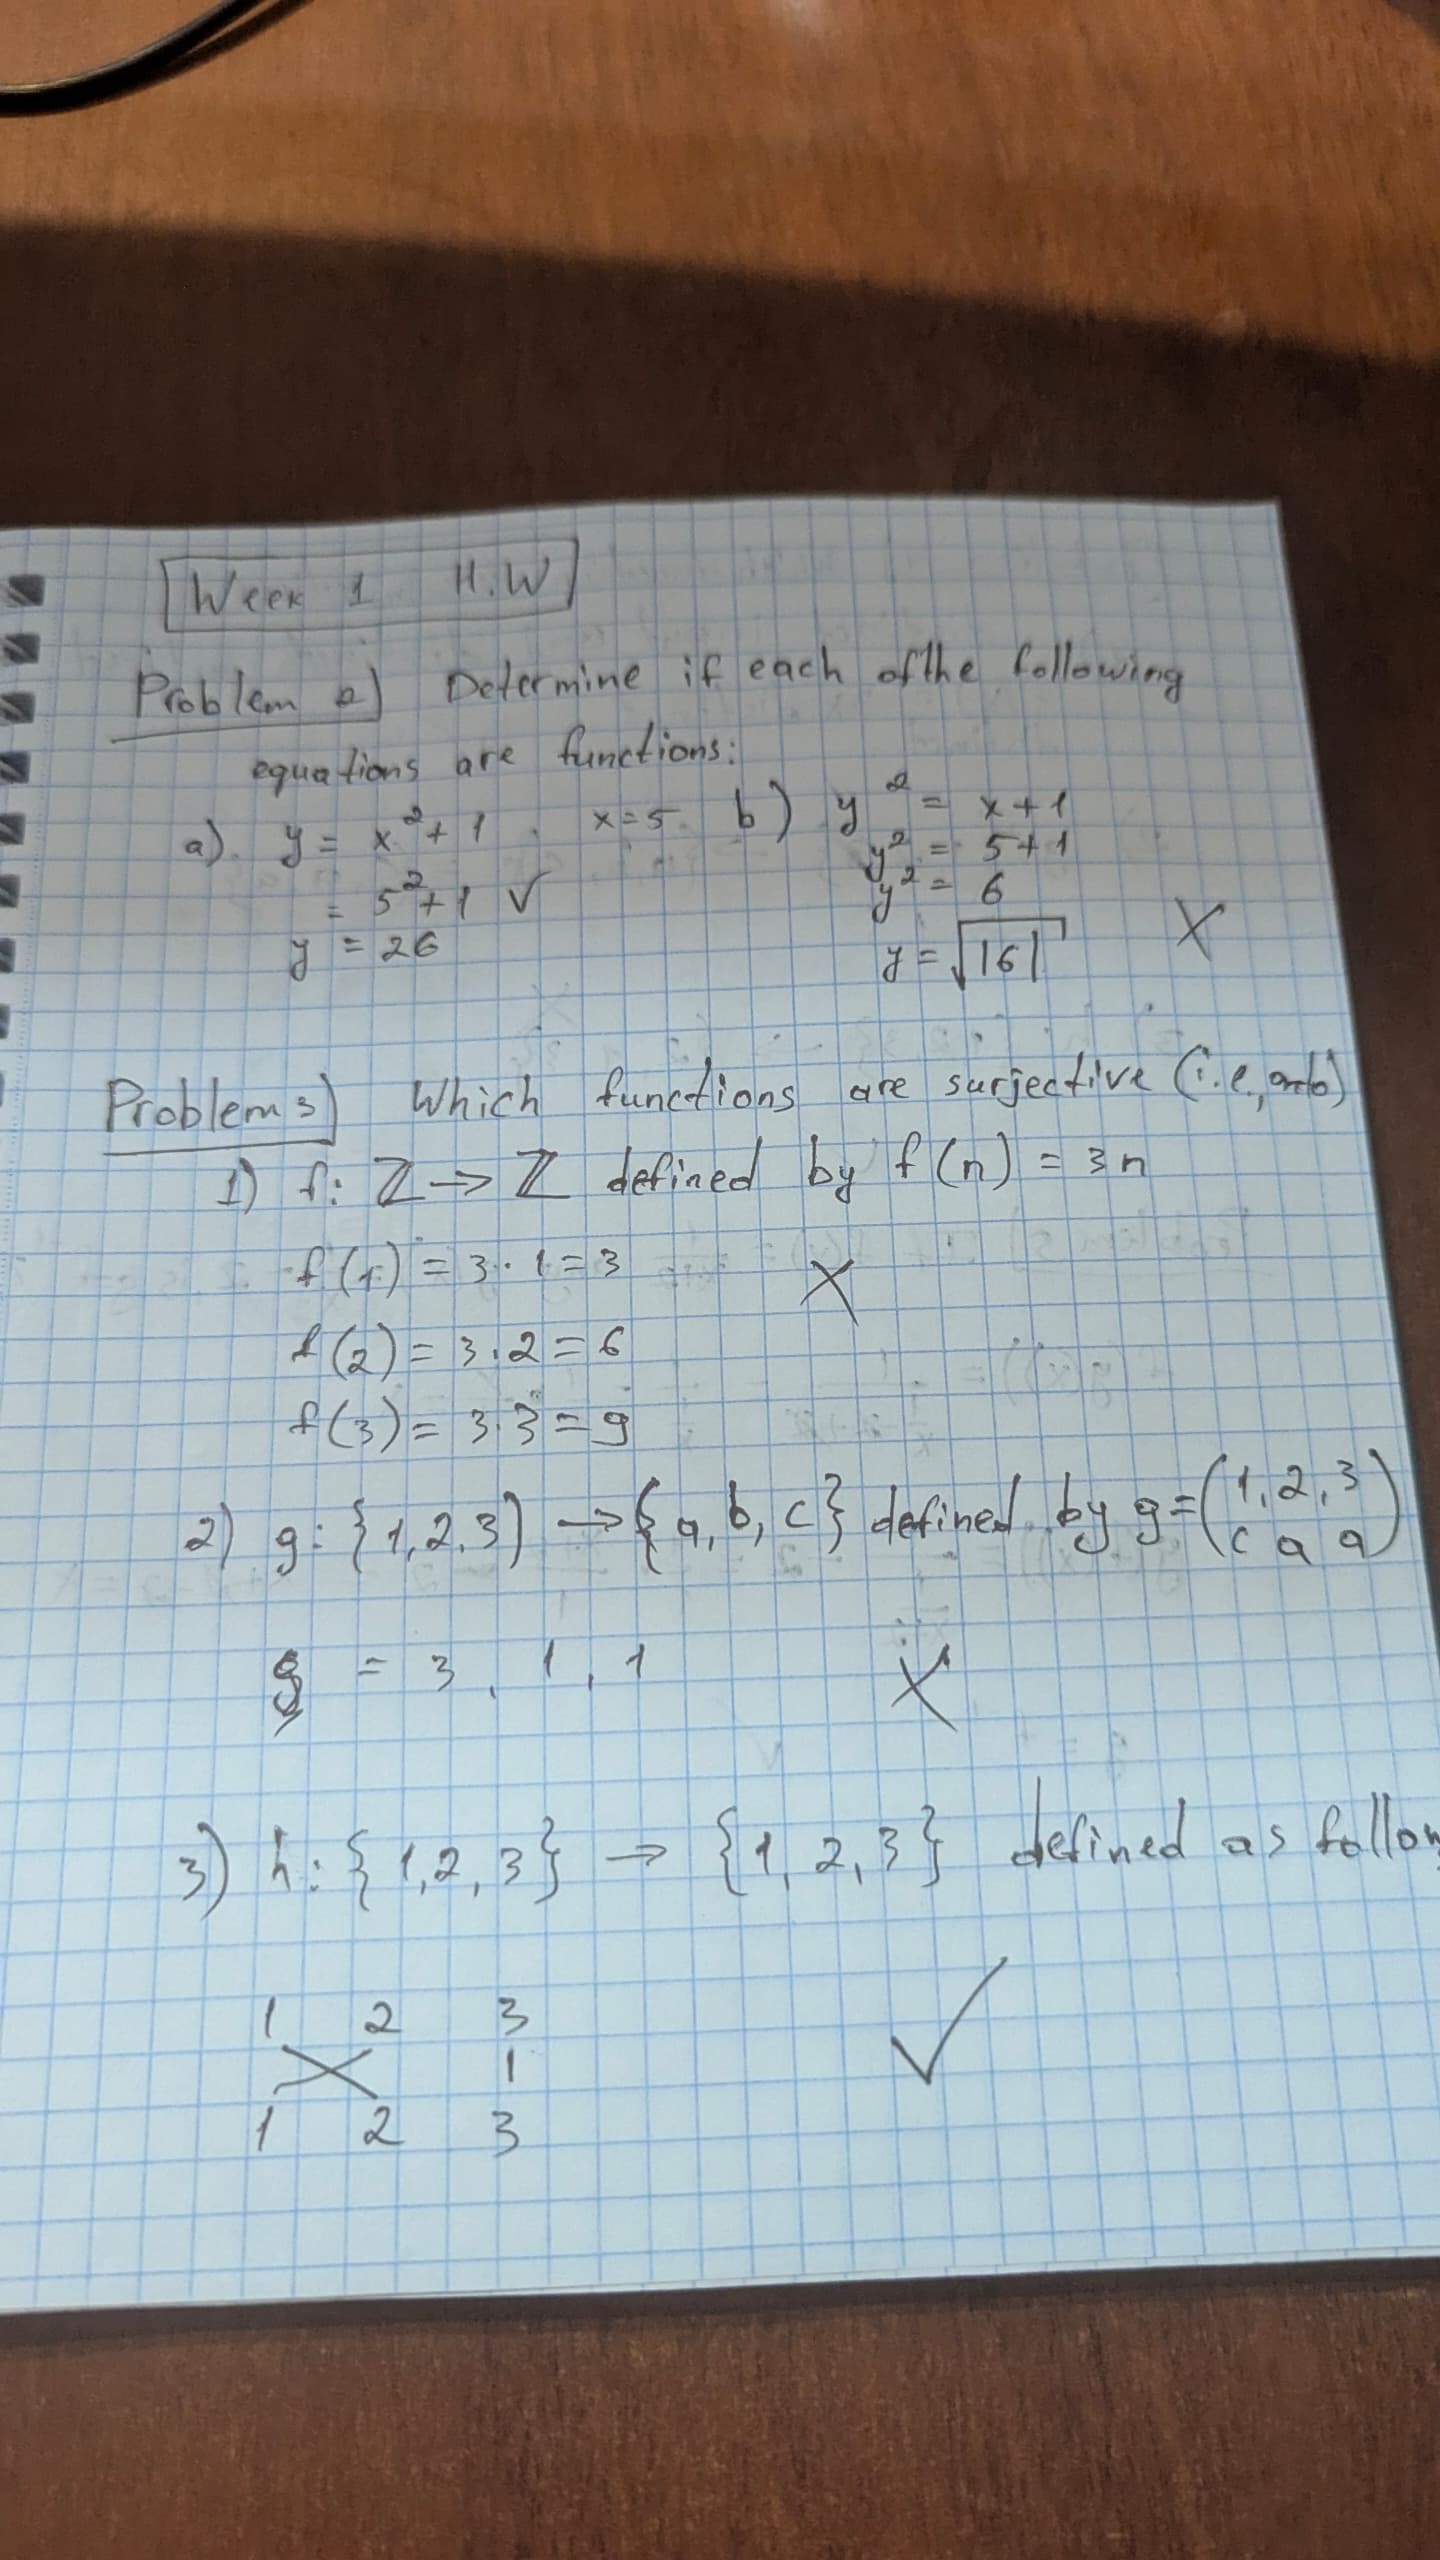 Week 1 H.W
Problem 2) Determine if each of the following
equations are functions:
a). y = x²+ 1 x=5. b) y² = x+1
= 5²+1 ✓ y² = 5+1
y = 26 y² = 6
y = √|6| X
Problem 3) Which functions are surjective (i.e., onto)
1) f: ℤ → ℤ defined by f(n) = 3n
f(1) = 3·1=3 X
f(2) = 3·2=6
f(3) = 3·3=9
2) g: {1,2,3) → {a, b, c} defined by g=(1,2,3
c a a)
g = 3, 1, 1 X
3) h: {1,2,3} → {1, 2, 3} defined as follow
1 2 3
✓
1 2 3